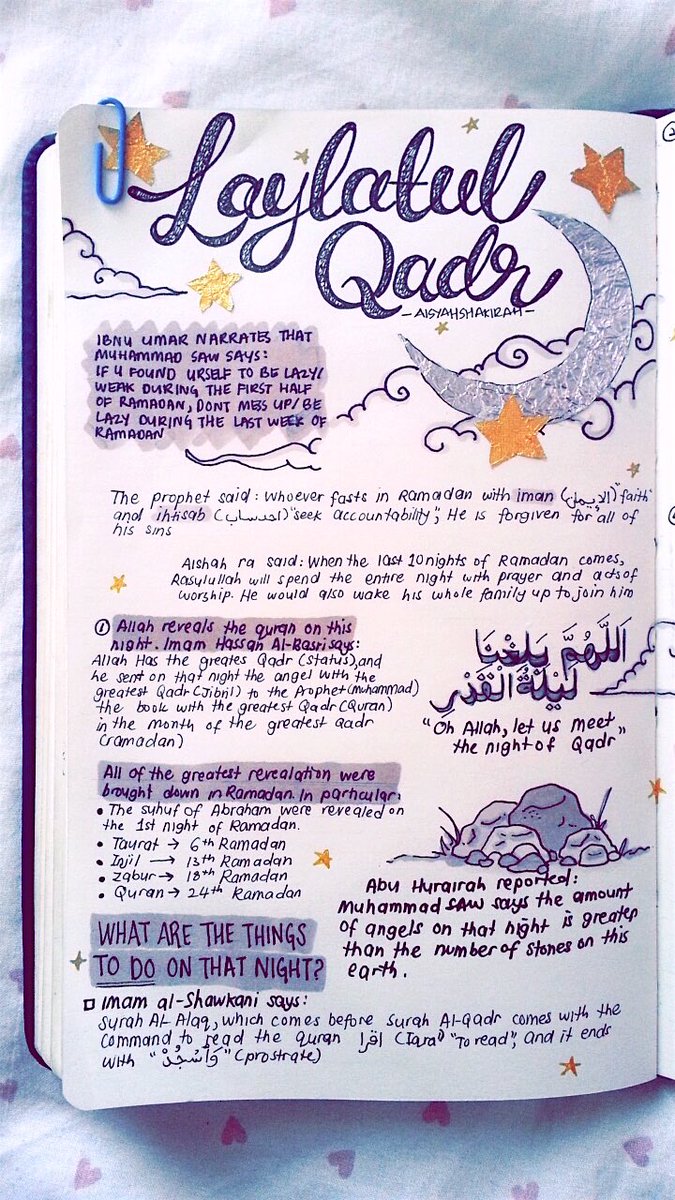 Laylatul
Qadr
- AISYAHSHAKIRAH -
IBNU UMAR NARRATES THAT
MUHAMMAD SAW SAYS:
IF U FOUND URSELF TO BE LAZY/
WEAK DURING THE FIRST HALF
OF RAMADAN, DONT MESS UP/BE
LAZY DURING THE LAST WEEK OF
RAMADAN
The prophet said: Whoever fasts in Ramadan with iman (الإيمان) "faith"
and ihtisab (احدساب) "seek accountability", He is forgiven for all of
his sins
Aishah ra said: When the last 10 nights of Ramadan comes,
Rasulullah will spend the entire night with prayer and acts of
worship. He would also wake his whole family up to join him
① Allah reveals the quran on this
night. Imam Hassan Al-Basri says:
Allah Has the greates Qadr (status), and
he sent on that night the angel with the
greatest Qadr (Jibril) to the Prophet (Muhammad)
the book with the greatest Qadr (Quran)
in the month of the greatest qadr
(ramadan)
اللَّهُمَّ بَلِّغْنَا
لَيْلَةُ الْقَدْرِ
"Oh Allah, let us meet
the night of Qadr"
All of the greatest revealation were
brought down in Ramadan. In particular:
• The suhuf of Abraham were revealed on
the 1st night of Ramadan.
• Taurat → 6th Ramadan
• Injil → 13th Ramadan
• Zabur → 18th Ramadan
• Quran → 24th Ramadan
Abu Hurairah reported:
Muhammad SAW says the amount
of angels on that night is greater
than the number of stones on this
earth.
WHAT ARE THE THINGS
TO DO ON THAT NIGHT?
□ Imam al-Shawkani says:
Surah Al-Alaq, which comes before Surah Al-Qadr comes with the
command to read the quran اقرا (Iqra') "To read", and it ends
with "وَاسْجُدْ" (prostrate)